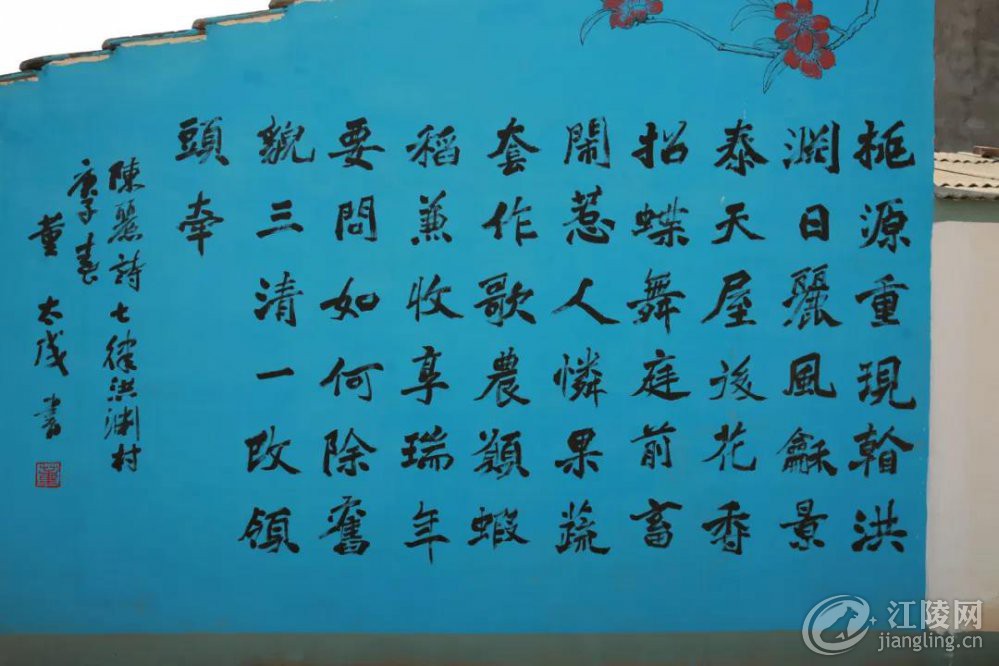 桃源重現翰洪
渊日麗風龢景
泰天屋後花香
招蝶舞庭前畜
鬧惹人憐果蔬
套作歌農蝦
稻兼收享瑞年
要問如何除舊
貌三清一改領
頭牽
陳麗詩七律洪渊村
庚子春
董太成書
江陵网
jiangling.cn